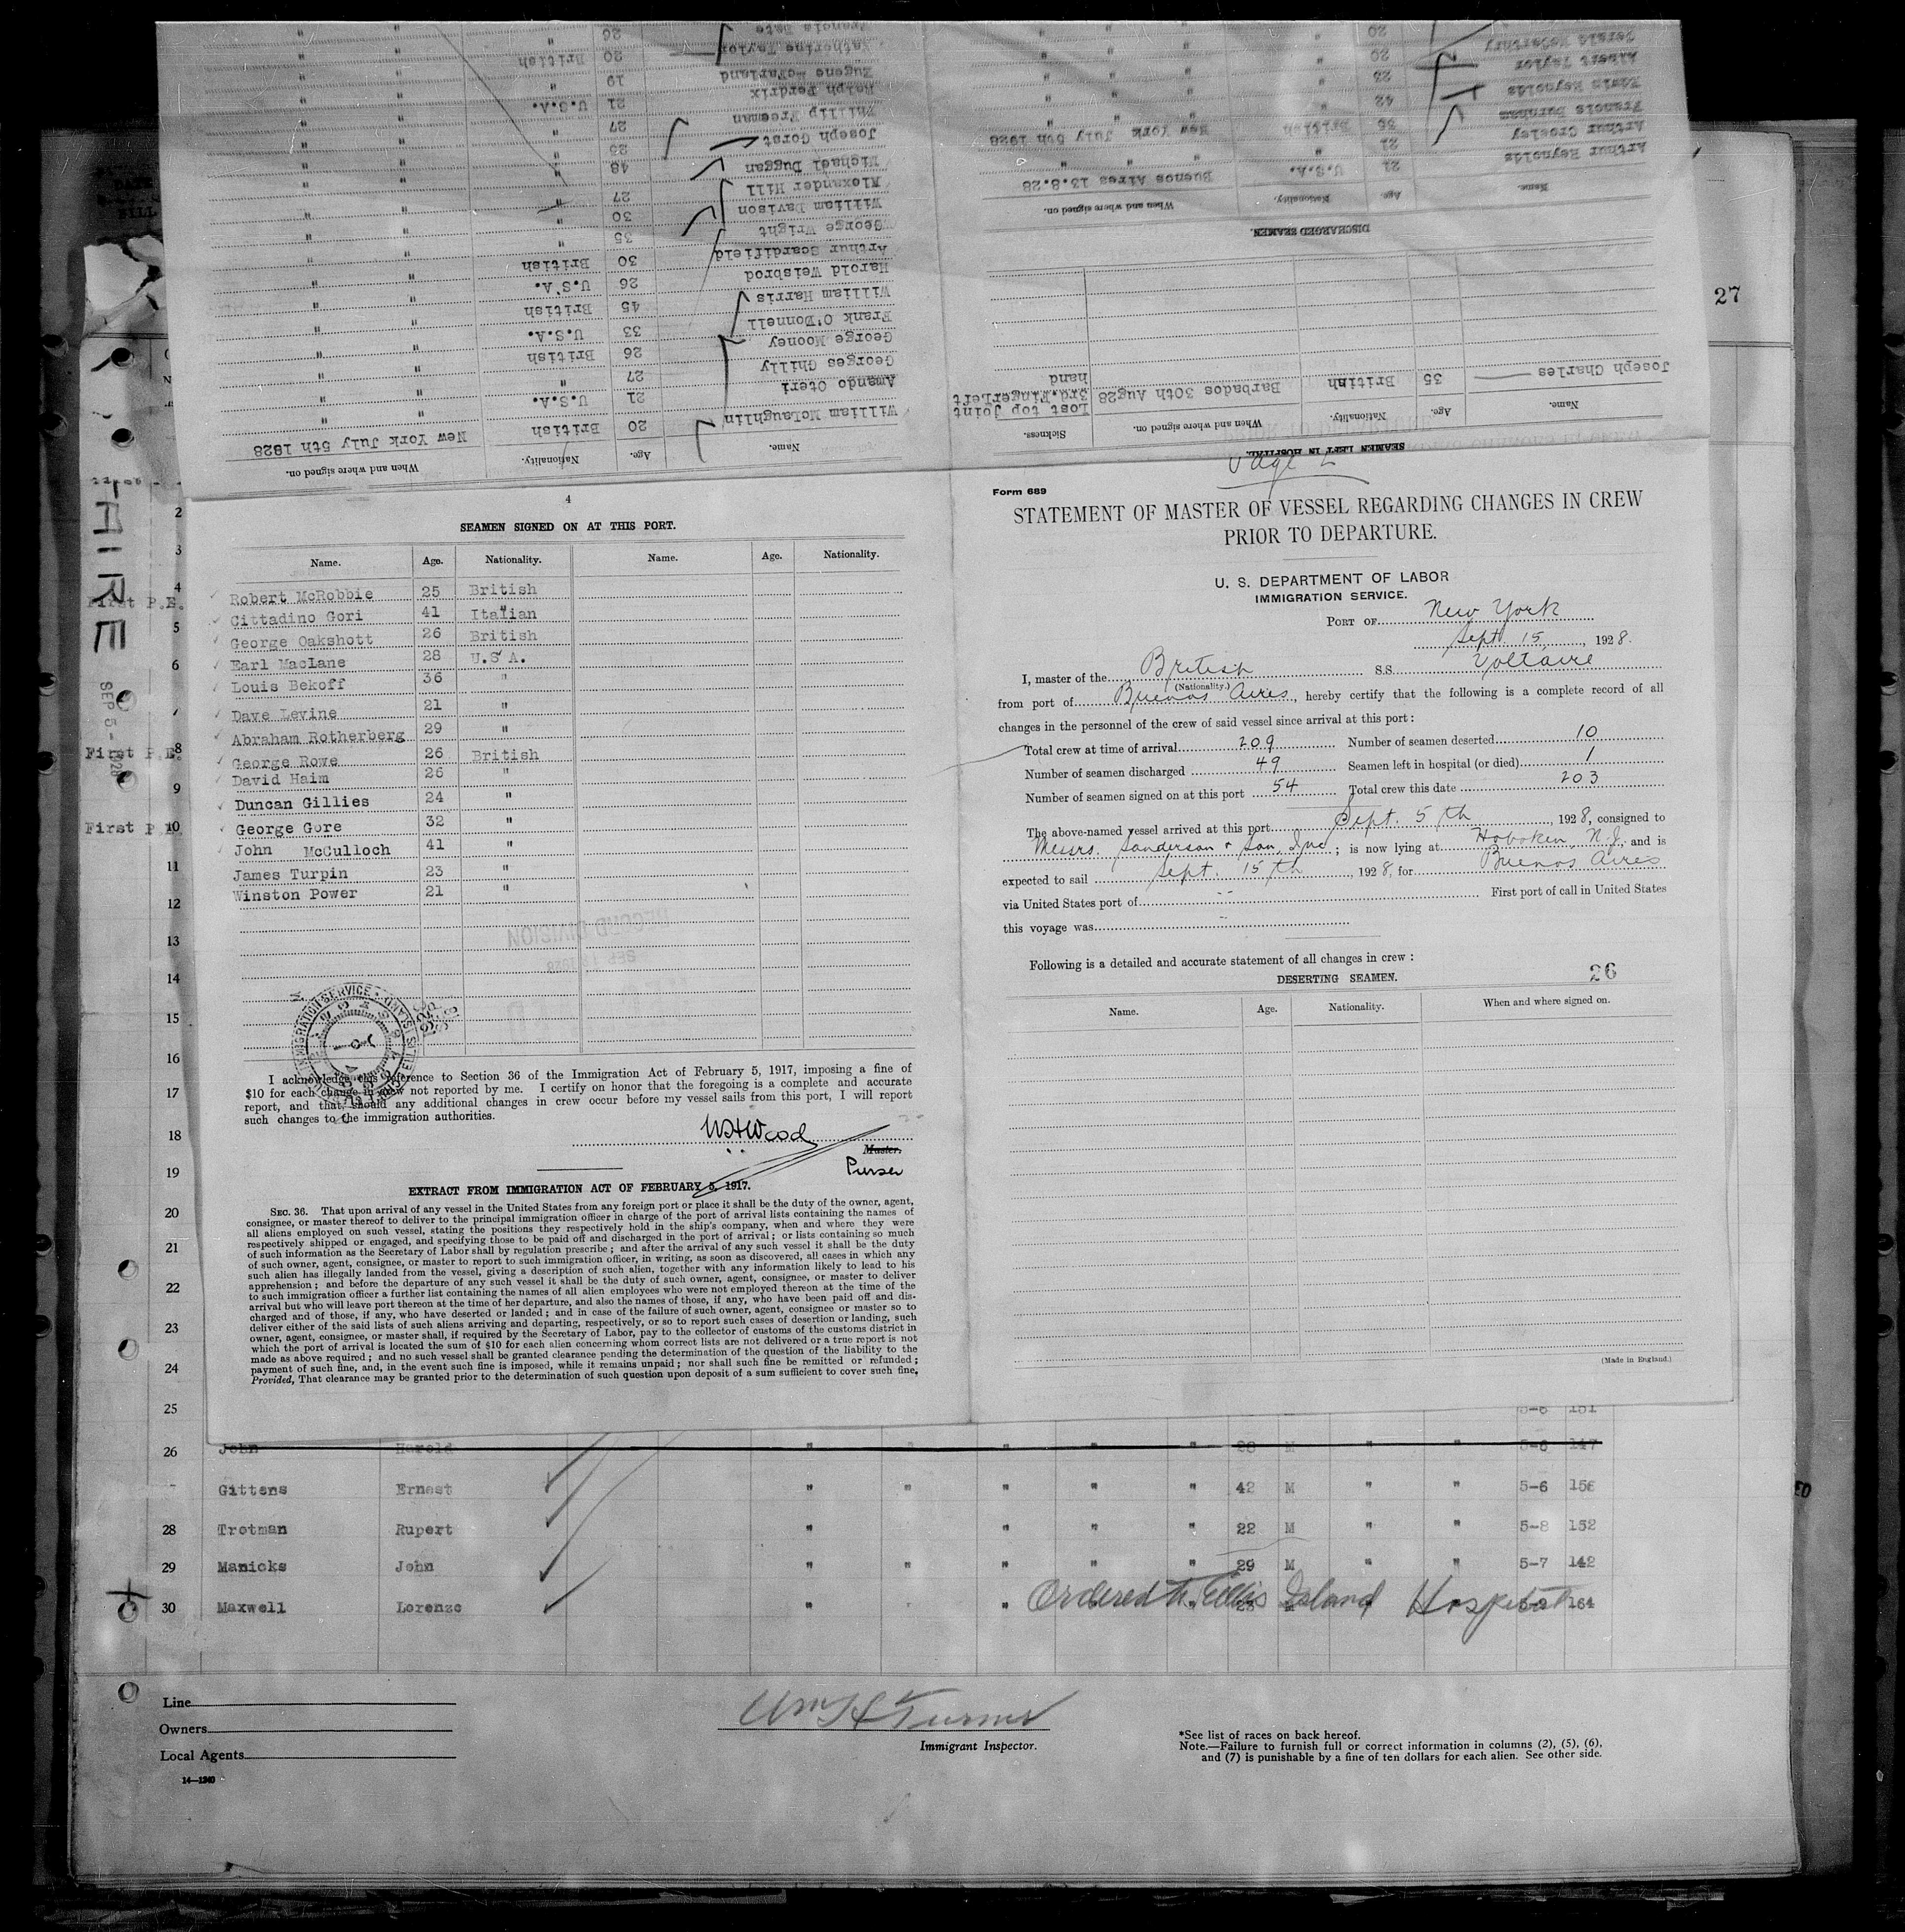 SEAMEN LEFT IN HOSPITAL.
Name. Age. Nationality. When and where signed on. Sickness.
Joseph Charles 35 British Barbados 30th Aug 28 Lost top joint
3rd.FingerLeft
hand
DISCHARGED SEAMEN.
Name. Age. Nationality. When and where signed on.
Arthur Reynolds 21 U.S.A. Buenos Aires 13.8.28
Arthur Croeley 21 " " "
Francis Burnham 35 British New York July 5th 1928
Edwin Reynolds 42 " " "
Albert Taylor 23 " " "
Gerald McCarthy 20 " " "
20 " " "
Name. Age. Nationality. When and where signed on.
William McLaughlin 20 British New York July 5th 1928
Amando Oteri 21 U.S.A. " "
Georges Ghilly 27 " " "
George Mooney 26 British " "
Frank O'Donnell 33 U.S.A. " "
William Harris 45 British " "
Harold Weisbrod 26 U.S.A. " "
Arthur Scardifield 30 British " "
George Wright 35 " " "
William Davison 30 " " "
Alexander Hill 27 " " "
Michael Duggan 48 " " "
Joseph Gorst 25 " " "
Phillip Freeman 27 " " "
Ralph Perdrix 21 U.S.A. " "
Eugene McFarland 19 " " "
Katherine Taylor 20 British " "
Francis Date 26 " " "
27
4
SEAMEN SIGNED ON AT THIS PORT.
Name. Age. Nationality. Name. Age. Nationality.
Robert McRobbie 25 British
Cittadino Gori 41 Italian
George Oakshott 26 British
Earl MacLane 28 U.S.A.
Louis Bekoff 36 "
Dave Levine 21 "
Abraham Rotherberg 29 "
George Rowe 26 British
David Haim 26 "
Duncan Gillies 24 "
George Gore 32 "
John McCulloch 41 "
James Turpin 23 "
Winston Power 21 "
RECORD DIVISION
I acknowledge this reference to Section 36 of the Immigration Act of February 5, 1917, imposing a fine of
$10 for each change in crew not reported by me. I certify on honor that the foregoing is a complete and accurate
report, and that, should any additional changes in crew occur before my vessel sails from this port, I will report
such changes to the immigration authorities.
WHWood
Master.
Purser
EXTRACT FROM IMMIGRATION ACT OF FEBRUARY 5, 1917.
SEC. 36. That upon arrival of any vessel in the United States from any foreign port or place it shall be the duty of the owner, agent,
consignee, or master thereof to deliver to the principal immigration officer in charge of the port of arrival lists containing the names of
all aliens employed on such vessel, stating the positions they respectively hold in the ship's company, when and where they were
respectively shipped or engaged, and specifying those to be paid off and discharged in the port of arrival; or lists containing so much
of such information as the Secretary of Labor shall by regulation prescribe; and after the arrival of any such vessel it shall be the duty
of such owner, agent, consignee, or master to report to such immigration officer, in writing, as soon as discovered, all cases in which any
such alien has illegally landed from the vessel, giving a description of such alien, together with any information likely to lead to his
apprehension; and before the departure of any such vessel it shall be the duty of such owner, agent, consignee, or master to deliver
to such immigration officer a further list containing the names of all alien employees who were not employed thereon at the time of the
arrival but who will leave port thereon at the time of her departure, and also the names of those, if any, who have been paid off and dis-
charged and of those, if any, who have deserted or landed; and in case of the failure of such owner, agent, consignee or master so to
deliver either of the said lists of such aliens arriving and departing, respectively, or so to report such cases of desertion or landing, such
owner, agent, consignee, or master shall, if required by the Secretary of Labor, pay to the collector of customs of the customs district in
which the port of arrival is located the sum of $10 for each alien concerning whom correct lists are not delivered or a true report is not
made as above required; and no such vessel shall be granted clearance pending the determination of the question of the liability to the
payment of such fine, and, in the event such fine is imposed, while it remains unpaid; nor shall such fine be remitted or refunded;
Provided, That clearance may be granted prior to the determination of such question upon deposit of a sum sufficient to cover such fine,
Form 689
STATEMENT OF MASTER OF VESSEL REGARDING CHANGES IN CREW
PRIOR TO DEPARTURE.
U. S. DEPARTMENT OF LABOR
IMMIGRATION SERVICE.
PORT OF New York
Sept. 15, 1928.
I, master of the British S.S. Voltaire
(Nationality.)
from port of Buenos Aires, hereby certify that the following is a complete record of all
changes in the personnel of the crew of said vessel since arrival at this port:
Total crew at time of arrival 209 Number of seamen deserted 10
Number of seamen discharged 49 Seamen left in hospital (or died) 1
Number of seamen signed on at this port 54 Total crew this date 203
The above-named vessel arrived at this port Sept. 5th, 1928, consigned to
Messrs. Sanderson & Son, Inc; is now lying at Hoboken, N.J., and is
expected to sail Sept. 15th, 1928, for Buenos Aires
via United States port of -- First port of call in United States
this voyage was --
Following is a detailed and accurate statement of all changes in crew:
DESERTING SEAMEN.
26
Name. Age. Nationality. When and where signed on.
(Made in England.)
2
3
4
First P.E.
5
6
7
SEP 5 - 1928
First P.E. 8
9
First P.E. 10
11
12
13
14
15
16
17
18
19
20
21
22
23
24
25 5-6 151
26 John Harold " " " " " 28 M " " 5-6 147
Gittens Ernest " " " " " 42 M " " 5-6 156
28 Trotman Rupert " " " " 22 M " " 5-8 152
29 Manicks John " " " " " 29 M " " 5-7 142
30 Maxwell Lorenzo " " Ordered to Ellis Island Hospital 164
Line
Owners
Local Agents
14—1240
Wm H Turner
Immigrant Inspector.
*See list of races on back hereof.
Note.—Failure to furnish full or correct information in columns (2), (5), (6),
and (7) is punishable by a fine of ten dollars for each alien. See other side.